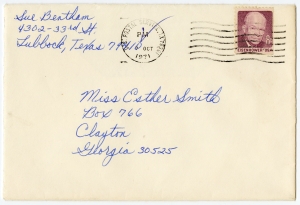 Sue Bentham
4302-33rd St.
Lubbock, Texas 79410
PM
OCT
1971
EISENHOWER·USA
Miss Esther Smith
Box 766
Clayton
Georgia 30525